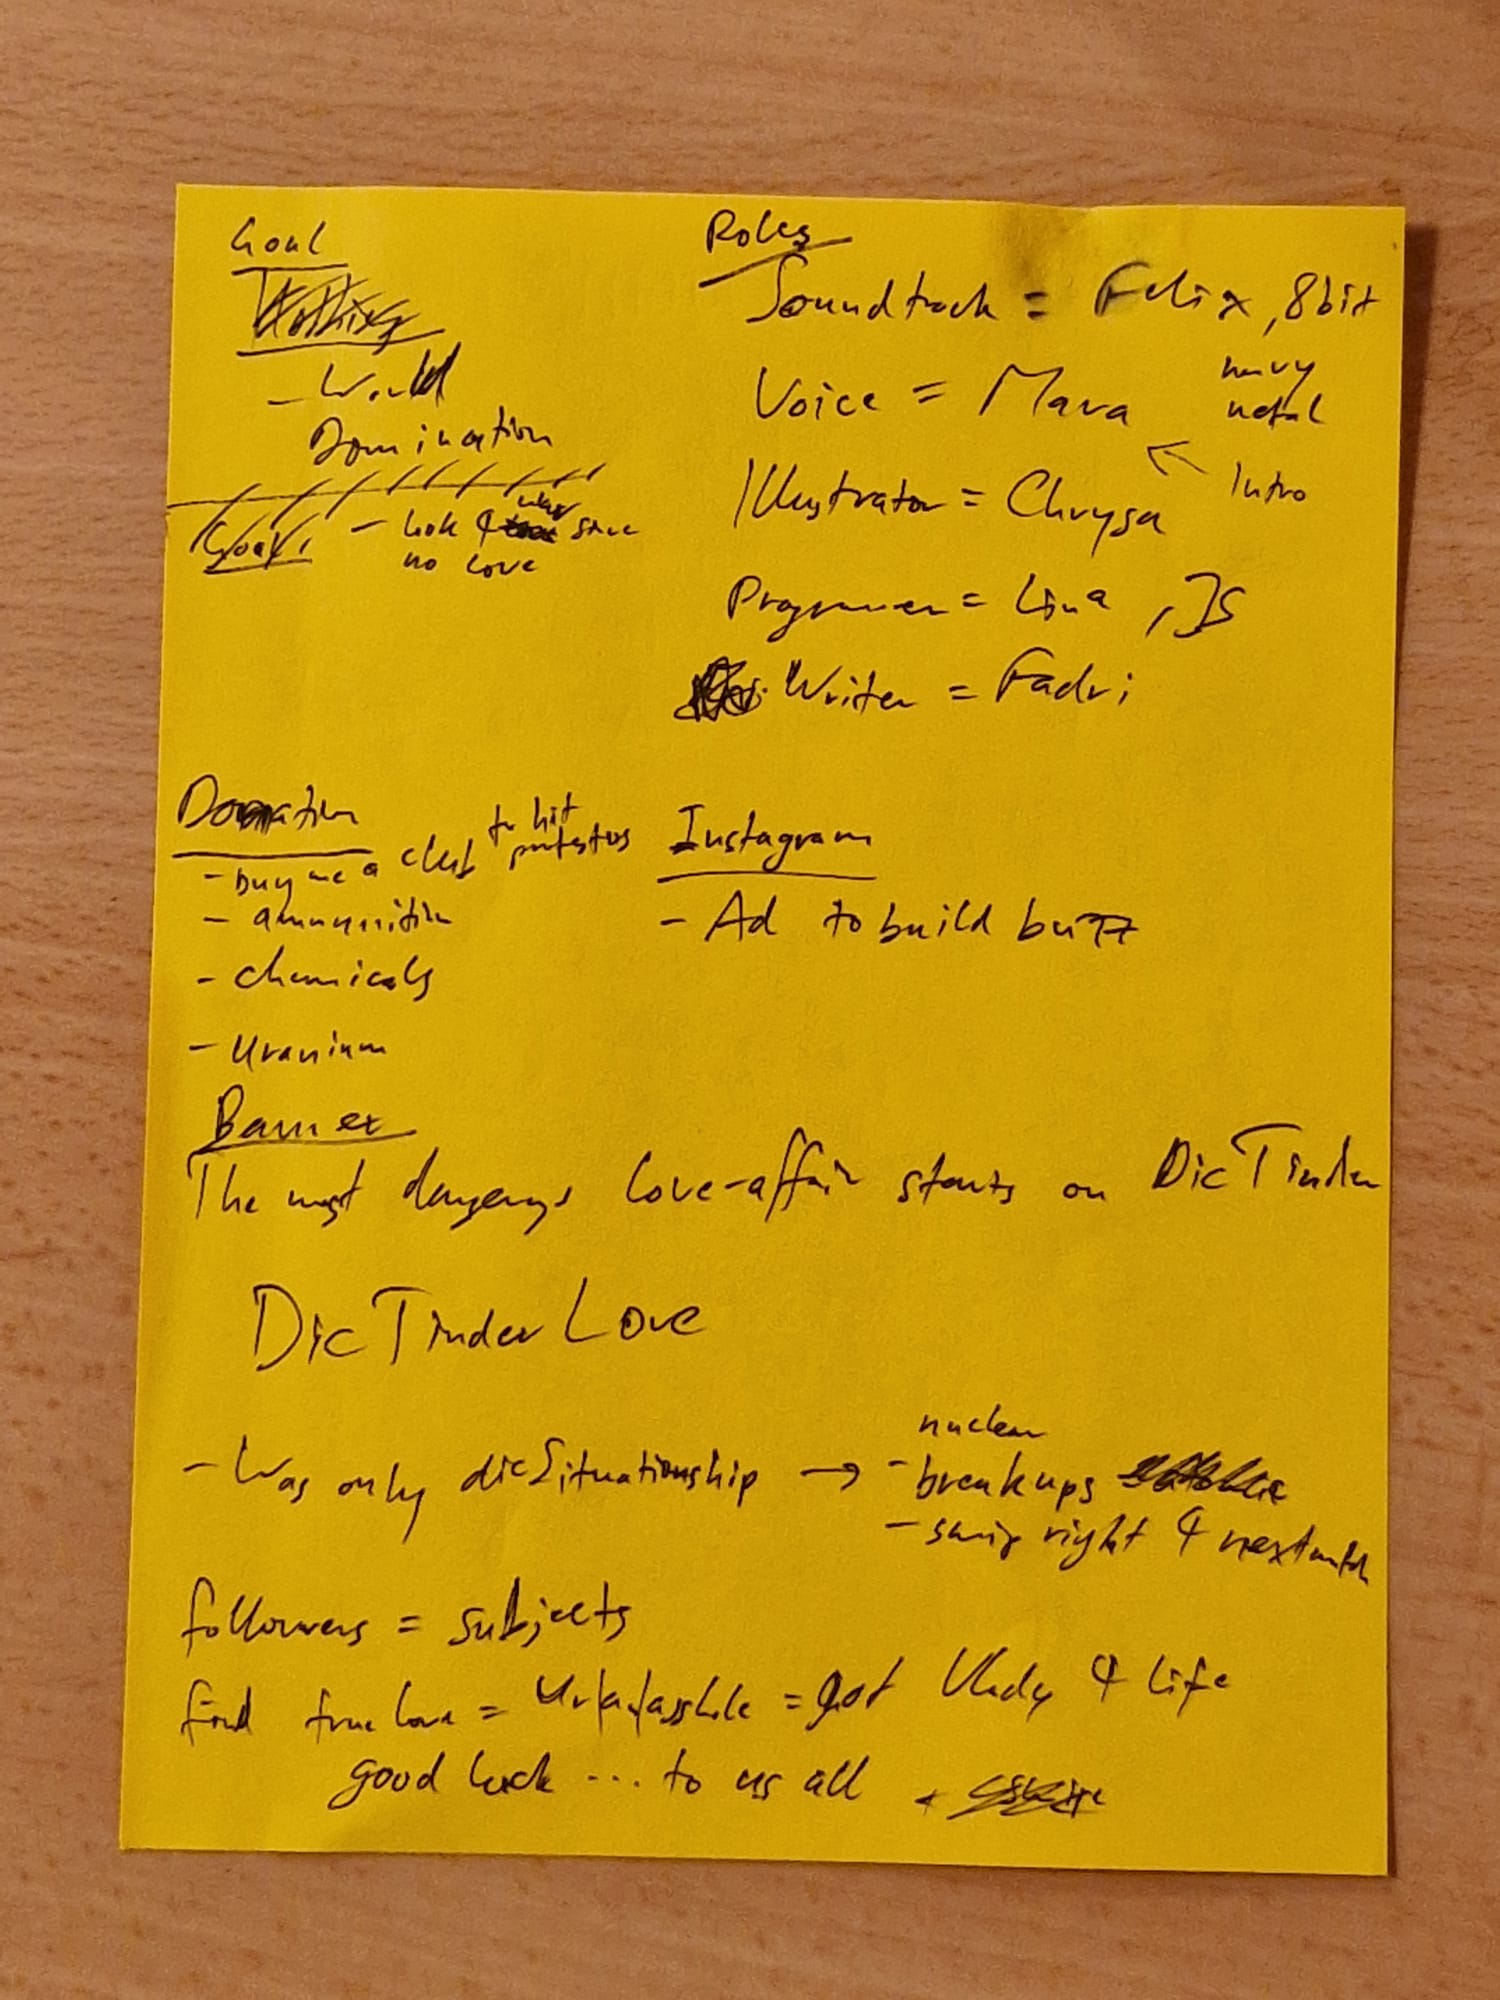 Goal
- World
Domination
- look & since
no love
Roles
Soundtrack = Felix, 8bit
heavy
metal
Voice = Mara
← Intro
Illustrator = Chrysa
Programmer = Lina, JS
Writer = Fadri
Donation
- buy me a club to hit
protestors
- ammunition
- chemicals
- Uranium
Instagram
- Ad to build buzz
Banner
The most dangerous love-affair starts on DicTinder
DicTinder Love
- Was only dicSituationship → - nuclear
breakups
- swip right & next match
followers = subjects
find true love = = got Vlady & life
good luck ... to us all